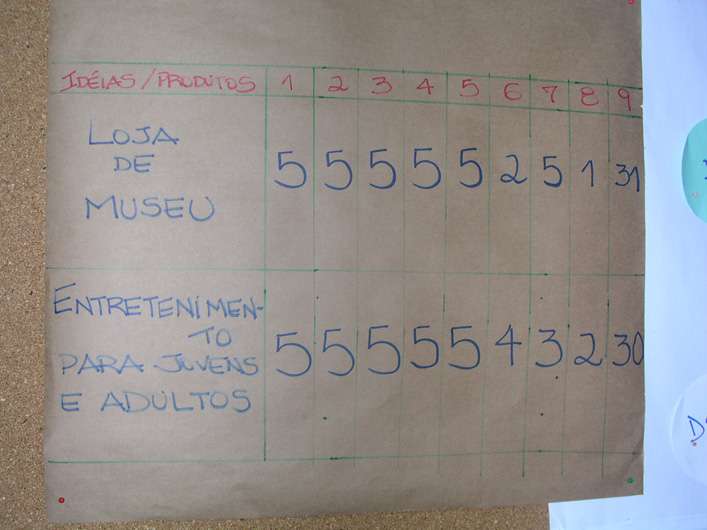 IDÉIAS/PRODUTOS 1 2 3 4 5 6 7 8 9
LOJA
DE
MUSEU
5 5 5 5 5 2 5 1 31
ENTRETENIMEN-
TO
PARA JOVENS
E ADULTOS
5 5 5 5 5 4 3 2 30